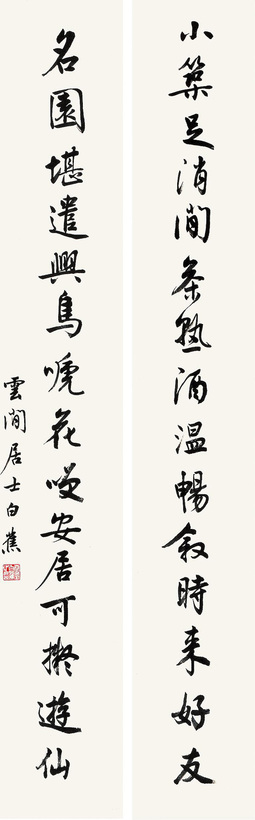 小築足消閒茶熟酒溫暢叙時来好友
名園堪遣興鳥嗁花咲安居可擬遊仙
雲間居士白蕉